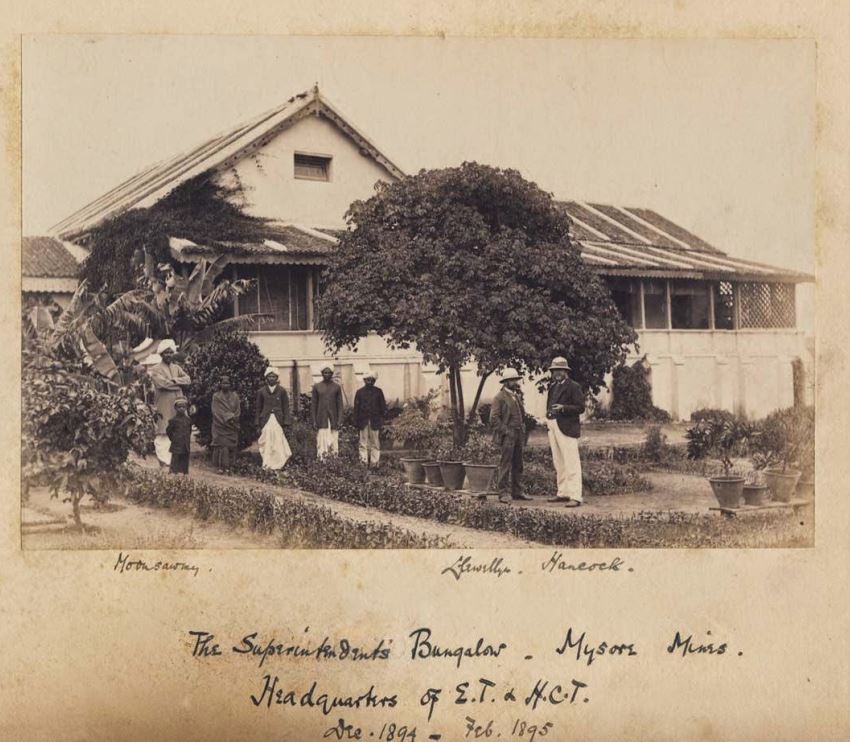 Moonsawmy. Llewellyn. Hancock.
The Superintendent's Bungalow - Mysore Mines.
Headquarters of E.T. & H.C.T.
Dec. 1894 - Feb. 1895